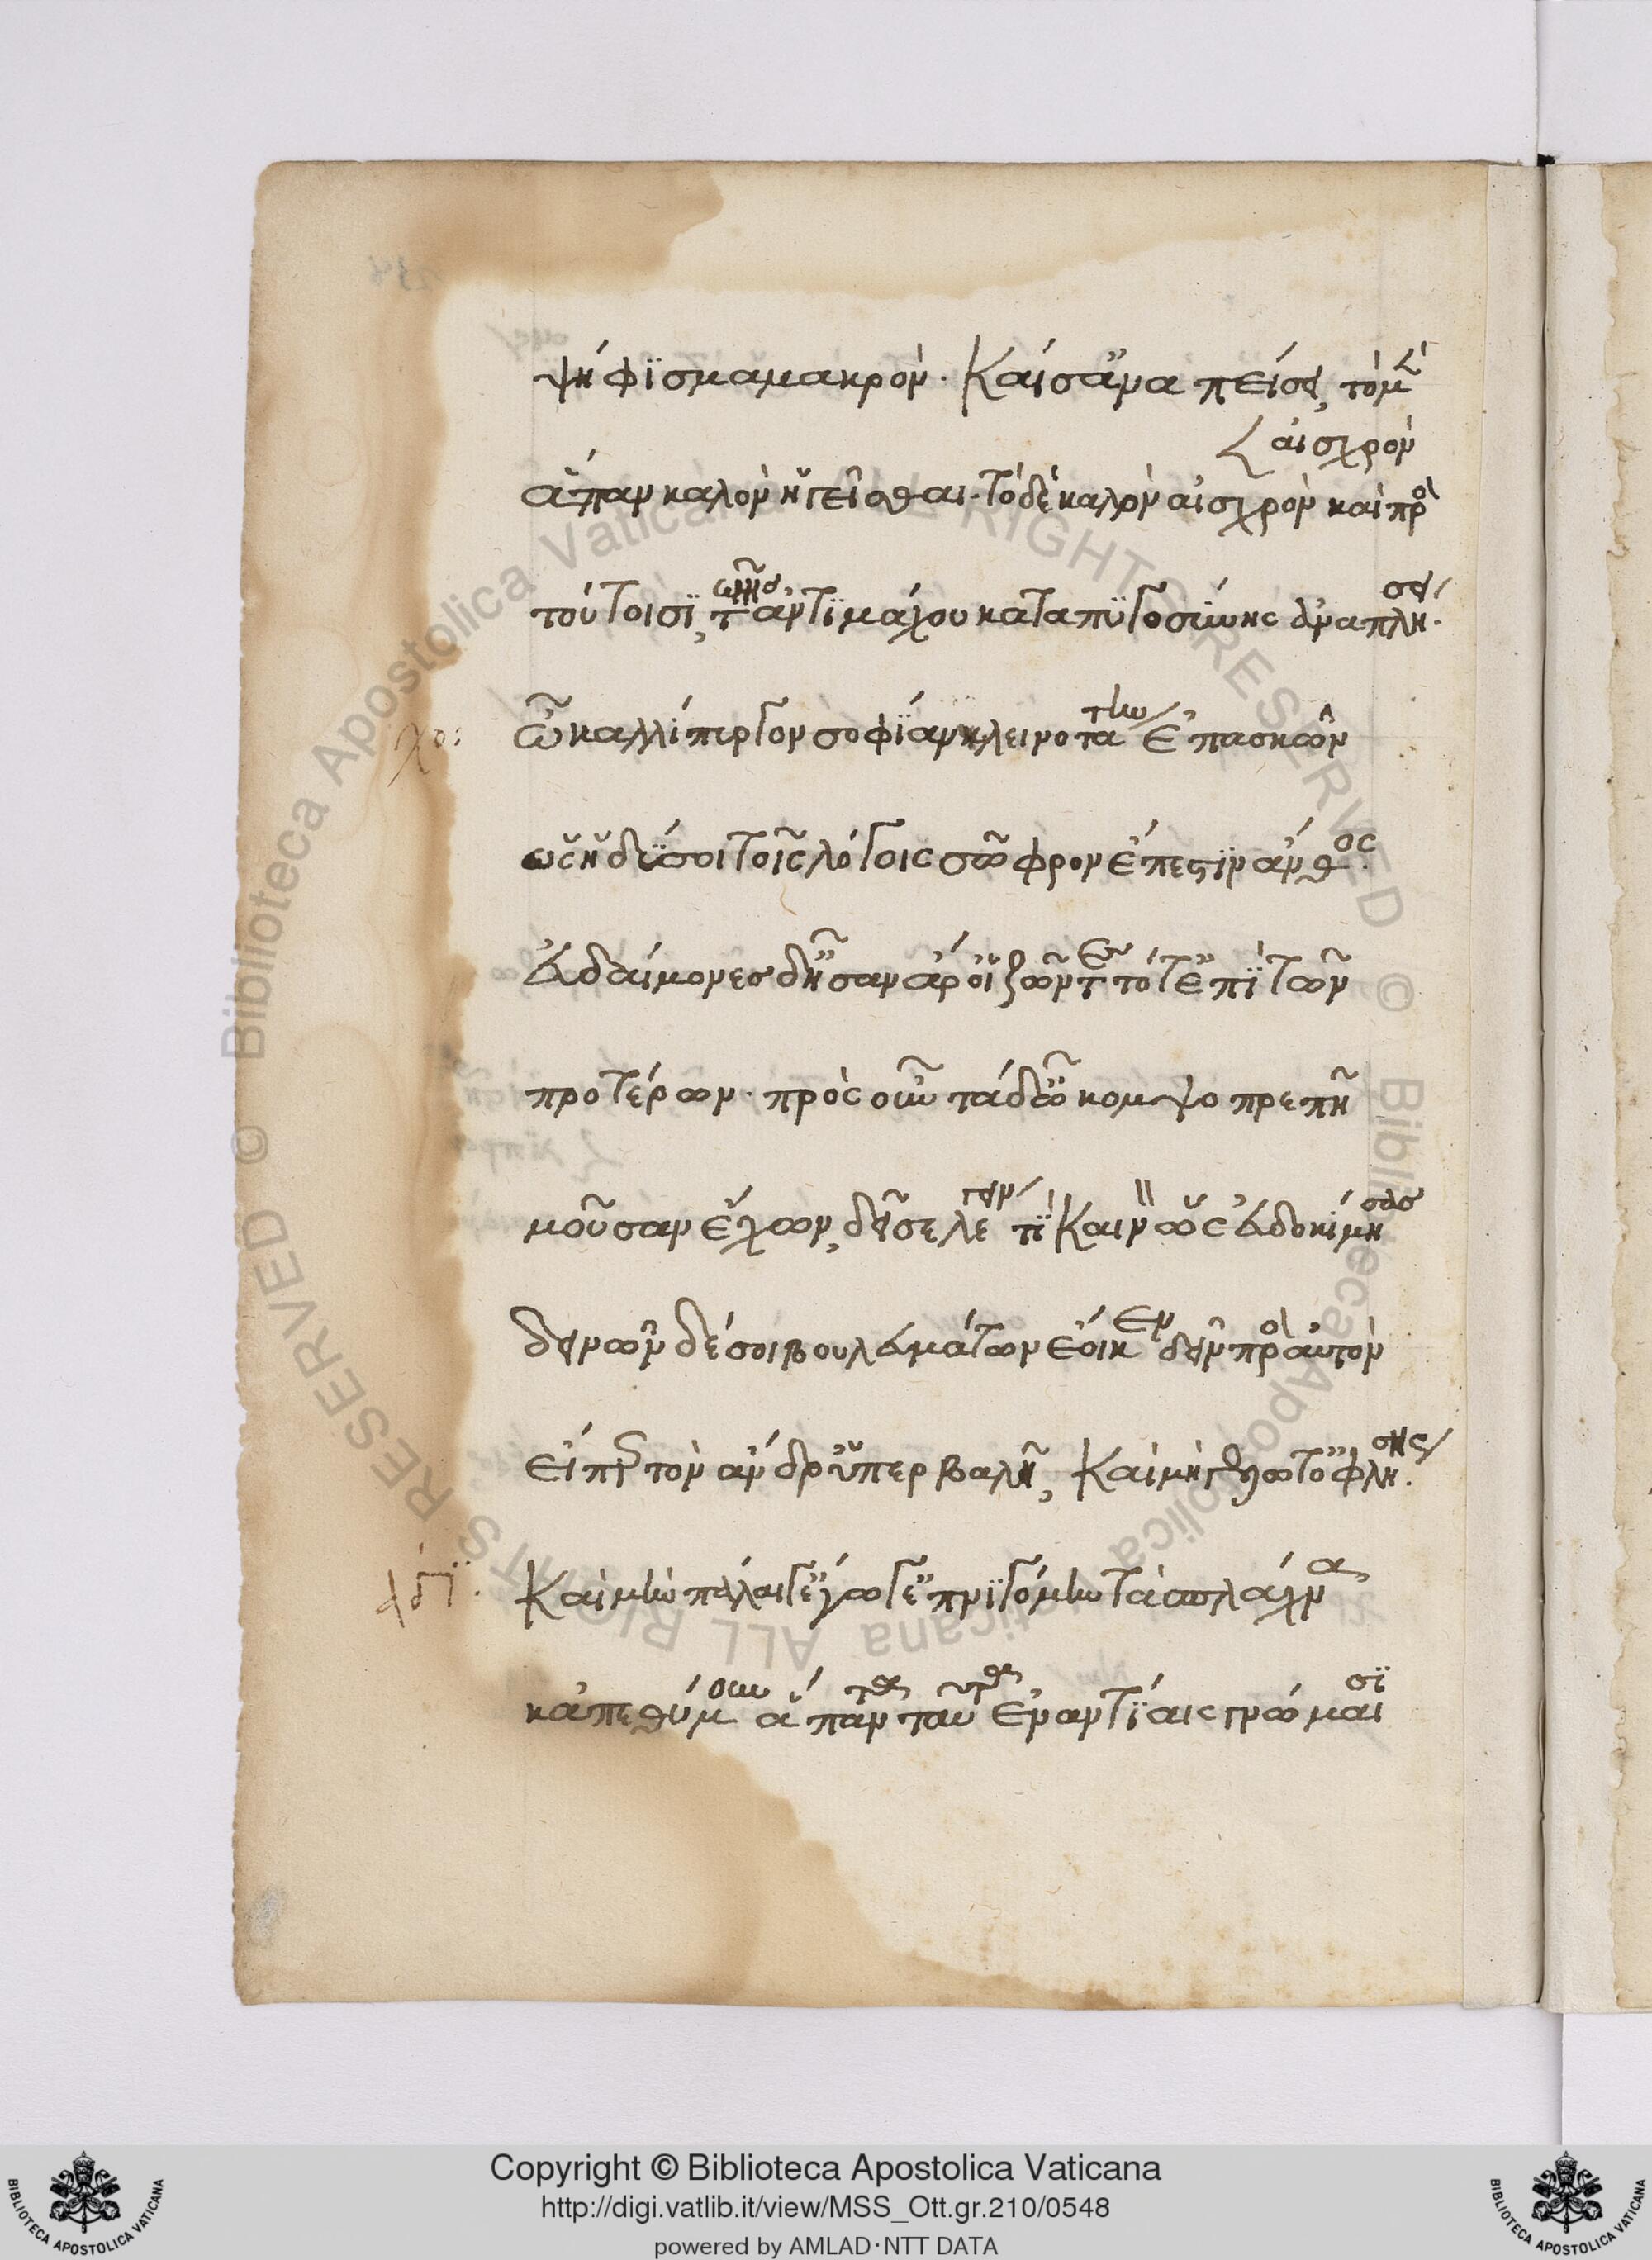 ψήφϊσμα μακρὸν. Καί σ' ἄναπείσει, τὸ μὲν
αἰσχρὸν
ἅπαν καλὸν ἡγεῖσθαι. τὸ δὲ καλὸν αἰσχρὸν καὶ πρὸς
τούτοισϊ, τῆς ἀντϊμάχου καταπϋγοσύνης ἀναπλήσει.
χο: ὦ καλλίπυργον σοφϊαν κλεινοτάτην ἐπασκῶν
ὡς ἡδύ σοι τοῖς λόγοις σῶφρον ἔπεστϊν ἄνθος.
εὐδαίμονες δ' ἦσαν ἄρ' οἱ ζῶντες τότ' ἐπὶ τῶν
προτέρων. πρὸς οὖν τάδ' ὦ κομψοπρεπῆ
μοῦσαν ἔχων, δεῖ σε λέγειν τϊ καινὸν ὡς εὐδοκίμησεν
δεινῶν δέ σοι βουλευμάτων ἔοικεν δεῖν πρὸς αὐτὸν
εἴπερ τὸν ἄνδρ' ὑπερβαλῆ, καὶ μὴ γέλωτ' ὀφλήσεις.
Καὶ μὴν πάλαι γ' ἔγωγ' ἐπνιγόμην τὰ σπλάγχνα
κἀπεθύμουν ἅπαντα ταῦτ' ἐναντϊαις γνώμαισϊ
Copyright © Biblioteca Apostolica Vaticana
http://digi.vatlib.it/view/MSS_Ott.gr.210/0548
powered by AMLAD·NTT DATA